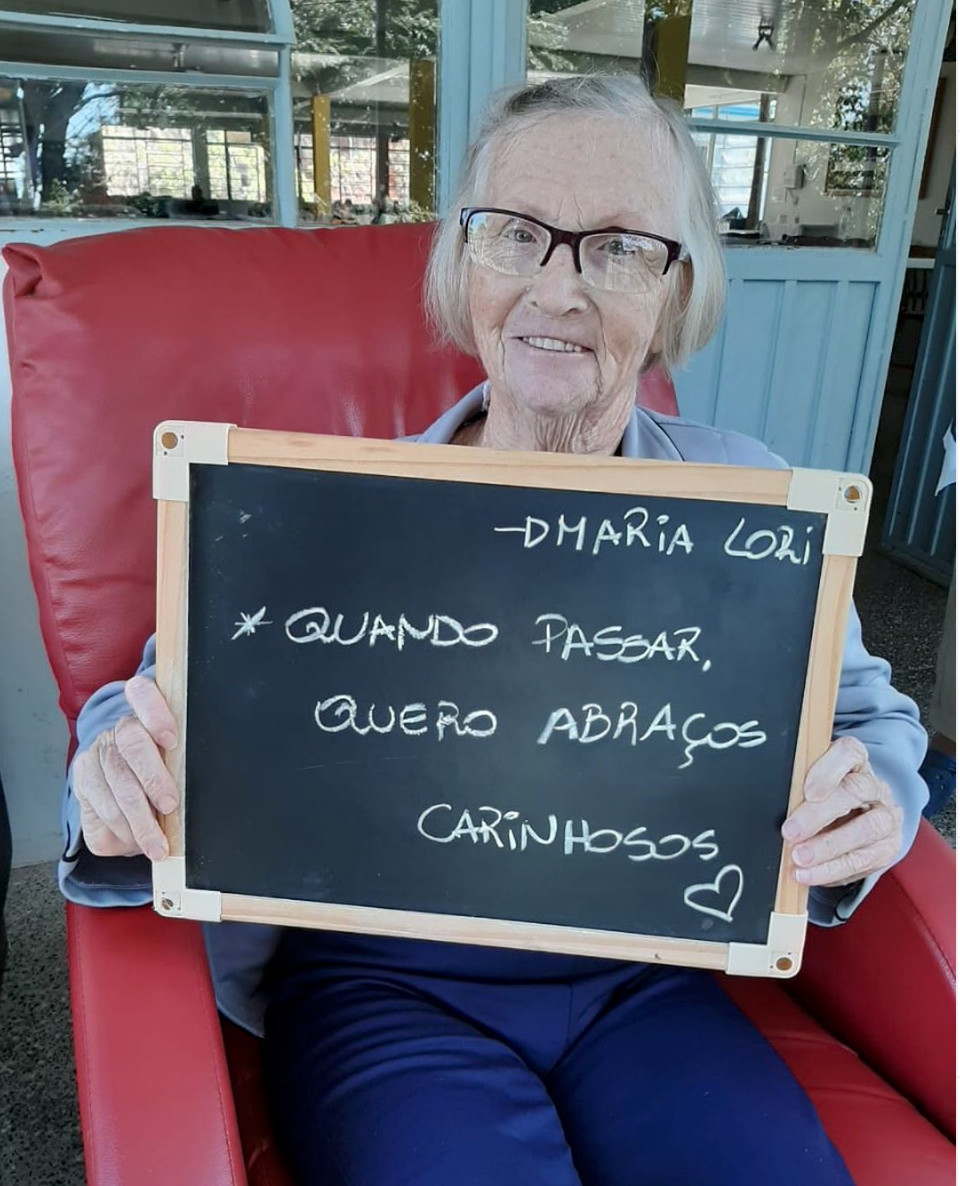 -DMARiA LORi
* QUANDO PASSAR,
QUERO ABRAÇOS
CARiNHOSOS